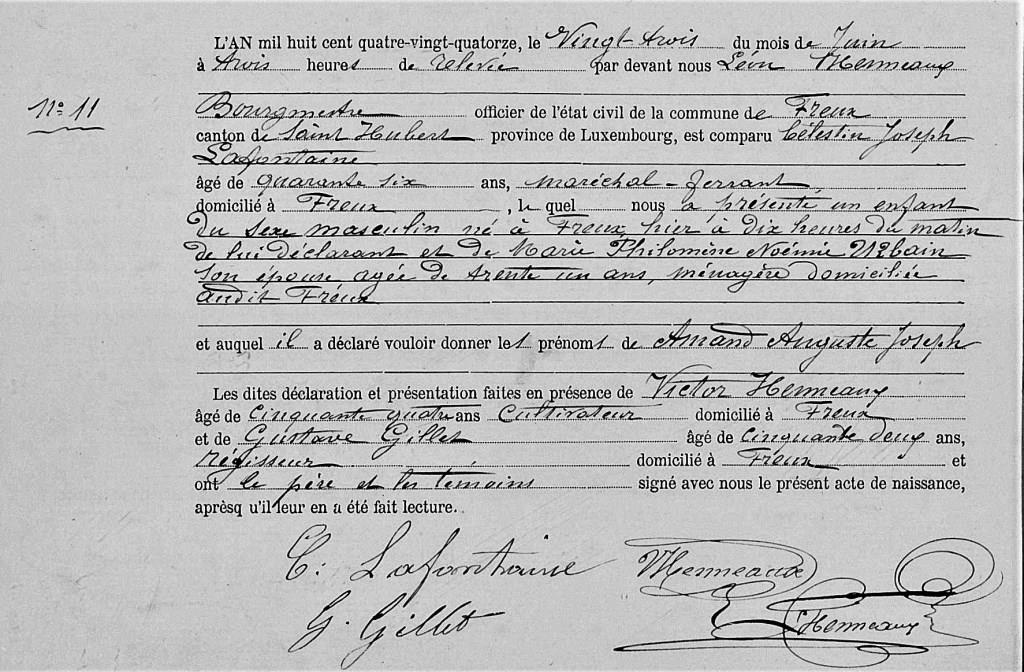 L'AN mil huit cent quatre-vingt-quatorze, le Vingt trois du mois de Juin
à trois heures de relevée par devant nous Léon Henneaux
N° 11
Bourgmestre officier de l'état civil de la commune de Freux
canton de Saint Hubert province de Luxembourg, est comparu Célestin Joseph
Lafontaine
âgé de quarante six ans, maréchal-ferrant,
domicilié à Freux, le quel nous a présenté un enfant
du sexe masculin né à Freux hier à dix heures du matin
de lui déclarant et de Marie Philomène Noémie Urbain
son épouse agée de trente un ans, ménagère domiciliée
audit Freux
et auquel il a déclaré vouloir donner les prénoms de Amand Auguste Joseph
Les dites déclaration et présentation faites en présence de Victor Henneaux
âgé de cinquante quatre ans Cultivateur domicilié à Freux
et de Gustave Gillet âgé de cinquante deux ans,
régisseur domicilié à Freux et
ont le père et les témoins signé avec nous le présent acte de naissance,
aprèsq u'il leur en a été fait lecture.
C: Lafontaine VHenneaux
G. Gillet LHenneaux